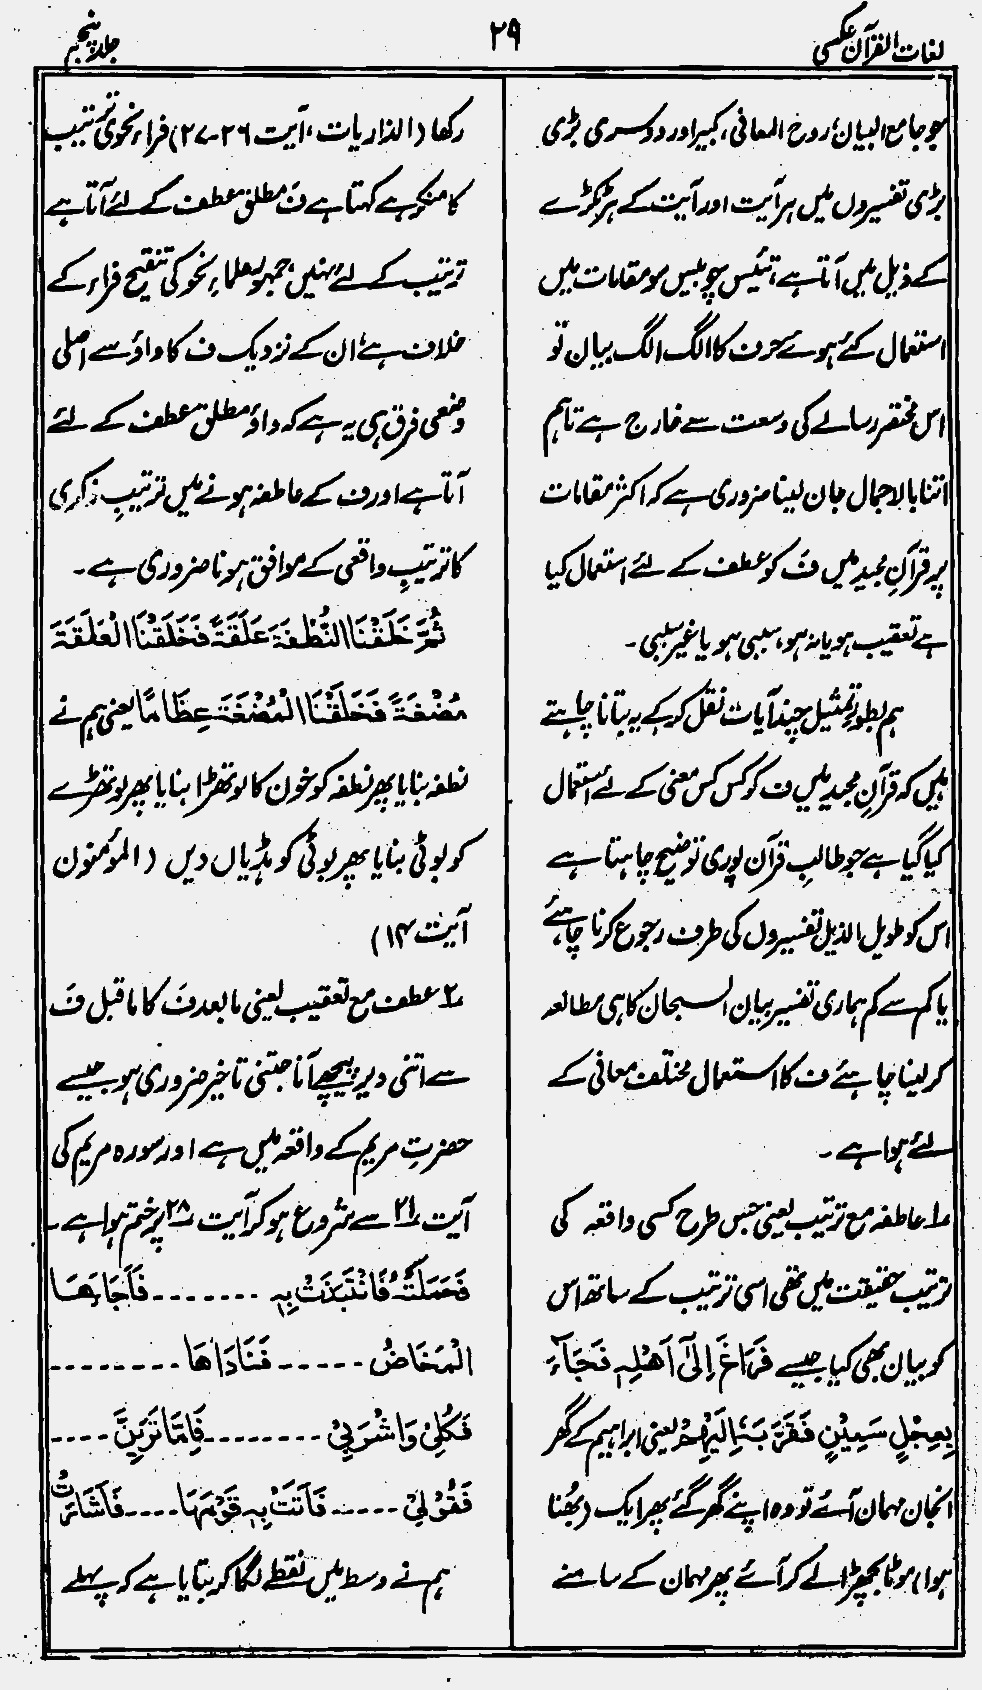 لغات القرآن عکسی
۲۹
جلد پنجم
جو جامع البیان، روح المعانی، کبیر اور دوسری بڑی
بڑی تفسیروں میں ہر آیت اور آیت کے ہر ٹکڑے
کے ذیل میں آتا ہے، تئیس چوبیس سو مقامات میں
استعمال کئے ہوئے حرف کا الگ الگ بیان تو
اس مختصر رسالے کی وسعت سے خارج ہے تاہم
اتنا بالاجمال جان لینا ضروری ہے کہ اکثر مقامات
پر قرآنِ مجید میں فَ کو عطف کے لئے استعمال کیا
ہے تعقیب ہو یا نہ ہو، سببی ہو یا غیر سببی۔
ہم بطور تمثیل چند آیات نقل کر کے یہ بتانا چاہتے
ہیں کہ قرآنِ مجید میں ف کو کس کس معنی کے لئے استعمال
کیا گیا ہے جو طالبِ قرآن پوری توضیح چاہتا ہے
اس کو طویل الذیل تفسیروں کی طرف رجوع کرنا چاہئے
یا کم سے کم ہماری تفسیر بیان السبحان کا ہی مطالعہ
کر لینا چاہئے ف کا استعمال مختلف معانی کے
لئے ہوا ہے۔
۱؎ عاطفہ مع ترتیب یعنی جس طرح کسی واقعہ کی
ترتیب حقیقت میں تھی اسی ترتیب کے ساتھ اس
کو بیان بھی کیا جیسے فَرَاغَ اِلٰٓى اَهْلِهٖ فَجَآءَ
بِعِجْلٍ سَمِيْنٍ فَقَرَّبَهٗٓ اِلَيْهِمْ یعنی ابراہیم کے گھر
انجان مہمان آئے تو وہ اپنے گھر گئے پھر ایک (بھُنا
ہوا) موٹا بچھڑا لے کر آئے پھر مہمان کے سامنے
رکھا (الذاریات، آیت ۲۶-۲۷) فراء نحوی ترتیب
کا منکر ہے کہتا ہے فَ مطلق عطف کے لئے آتا ہے
ترتیب کے لئے نہیں، جمہور علماءِ نحو کی تنقیح فراء کے
خلاف ہے، ان کے نزدیک ف کا واؤ سے اصلی
وضعی فرق ہی یہ ہے کہ واؤ مطلق عطف کے لئے
آتا ہے اور ف کے عاطفہ ہونے میں ترتیبِ ذکری
کا ترتیبِ واقعی کے موافق ہونا ضروری ہے۔
ثُمَّ خَلَقْنَا النُّطْفَةَ عَلَقَةً فَخَلَقْنَا الْعَلَقَةَ
مُضْغَةً فَخَلَقْنَا الْمُضْغَةَ عِظَامًا یعنی ہم نے
نطفہ بنایا پھر نطفہ کو خون کا لوتھڑا بنایا پھر لوتھڑے
کو بوٹی بنایا پھر بوٹی کو ہڈیاں دیں (المؤمنون
آیت ۱۴)
۲؎ عطف مع تعقیب یعنی مابعد فَ کا ماقبل فَ
سے اتنی دیر پیچھے آنا جتنی تاخیر ضروری ہو جیسے
حضرتِ مریم کے واقعہ میں ہے اور سورہ مریم کی
آیت ۲۱؎ سے شروع ہو کر آیت ۲۸؎ پر ختم ہوا ہے۔
فَحَمَلَتْهُ فَانْتَبَذَتْ بِهٖ ------- فَاَجَآءَهَا
الْمَخَاضُ ----- فَنَادَاهَا --------
فَكُلِىْ وَاشْرَبِىْ -------- فَاِمَّا تَرَيِنَّ ----
فَقُوْلِىْ ----- فَاَتَتْ بِهٖ قَوْمَهَا ---- فَاَشَارَتْ
ہم نے وسط میں نقطے لگا کر بتایا ہے کہ پہلے